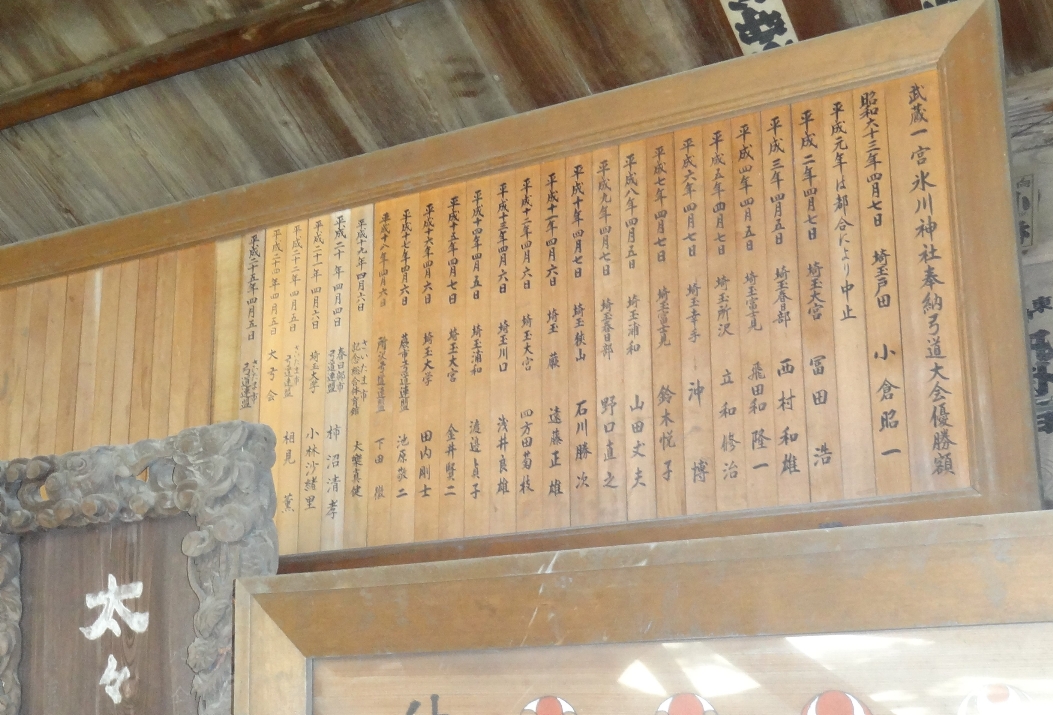 武蔵一宮氷川神社奉納弓道大会優勝額
昭和六十三年四月七日 埼玉戸田 小倉昭一
平成元年は都合により中止
平成二年四月七日 埼玉大宮 冨田浩
平成三年四月五日 埼玉春日部 西村和雄
平成四年四月五日 埼玉富士見 飛田和隆一
平成五年四月七日 埼玉所沢 立和修治
平成六年四月七日 埼玉幸手 沖博
平成七年四月七日 埼玉富士見 鈴木悦子
平成八年四月五日 埼玉浦和 山田丈夫
平成九年四月七日 埼玉春日部 野口直之
平成十年四月七日 埼玉狭山 石川勝次
平成十一年四月六日 埼玉蕨 遠藤正雄
平成十二年四月六日 埼玉大宮 四方田菊枝
平成十三年四月六日 埼玉川口 浅井良雄
平成十四年四月五日 埼玉浦和 渡邉貞子
平成十五年四月七日 埼玉大宮 金井賢二
平成十六年四月六日 埼玉大学 田内剛士
平成十七年四月六日 蕨市弓道連盟 池原敬二
平成十八年四月六日 所沢市弓道連盟 下田徹
平成十九年四月六日 さいたま市記念総合体育館 大樂真健
平成二十年四月四日 春日部市弓道連盟 柿沼清孝
平成二十一年四月六日 埼玉大学 小林沙緒里
平成二十二年四月五日 さいたま市弓道連盟 相見薫
平成二十四年四月五日 大弓会
平成二十五年四月五日 さいたま市弓道連盟
太々